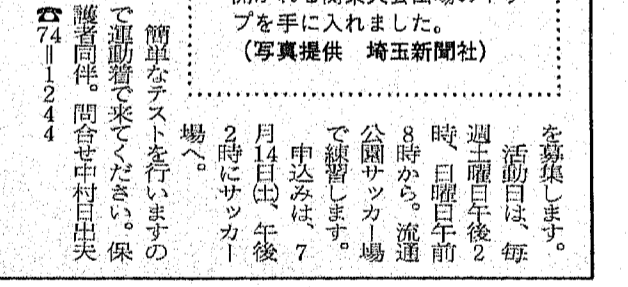 プを手に入れました。
(写真提供 埼玉新聞社)
を募集します。
活動日は、毎
週土曜日午後2
時、日曜日午前
8時から。流通
公園サッカー場
で練習します。
申込みは、7
月14日(土)、午後
2時にサッカー
場へ。
簡単なテストを行いますの
で運動着で来てください。保
護者同伴。問合せ中村日出夫
☎74=1244